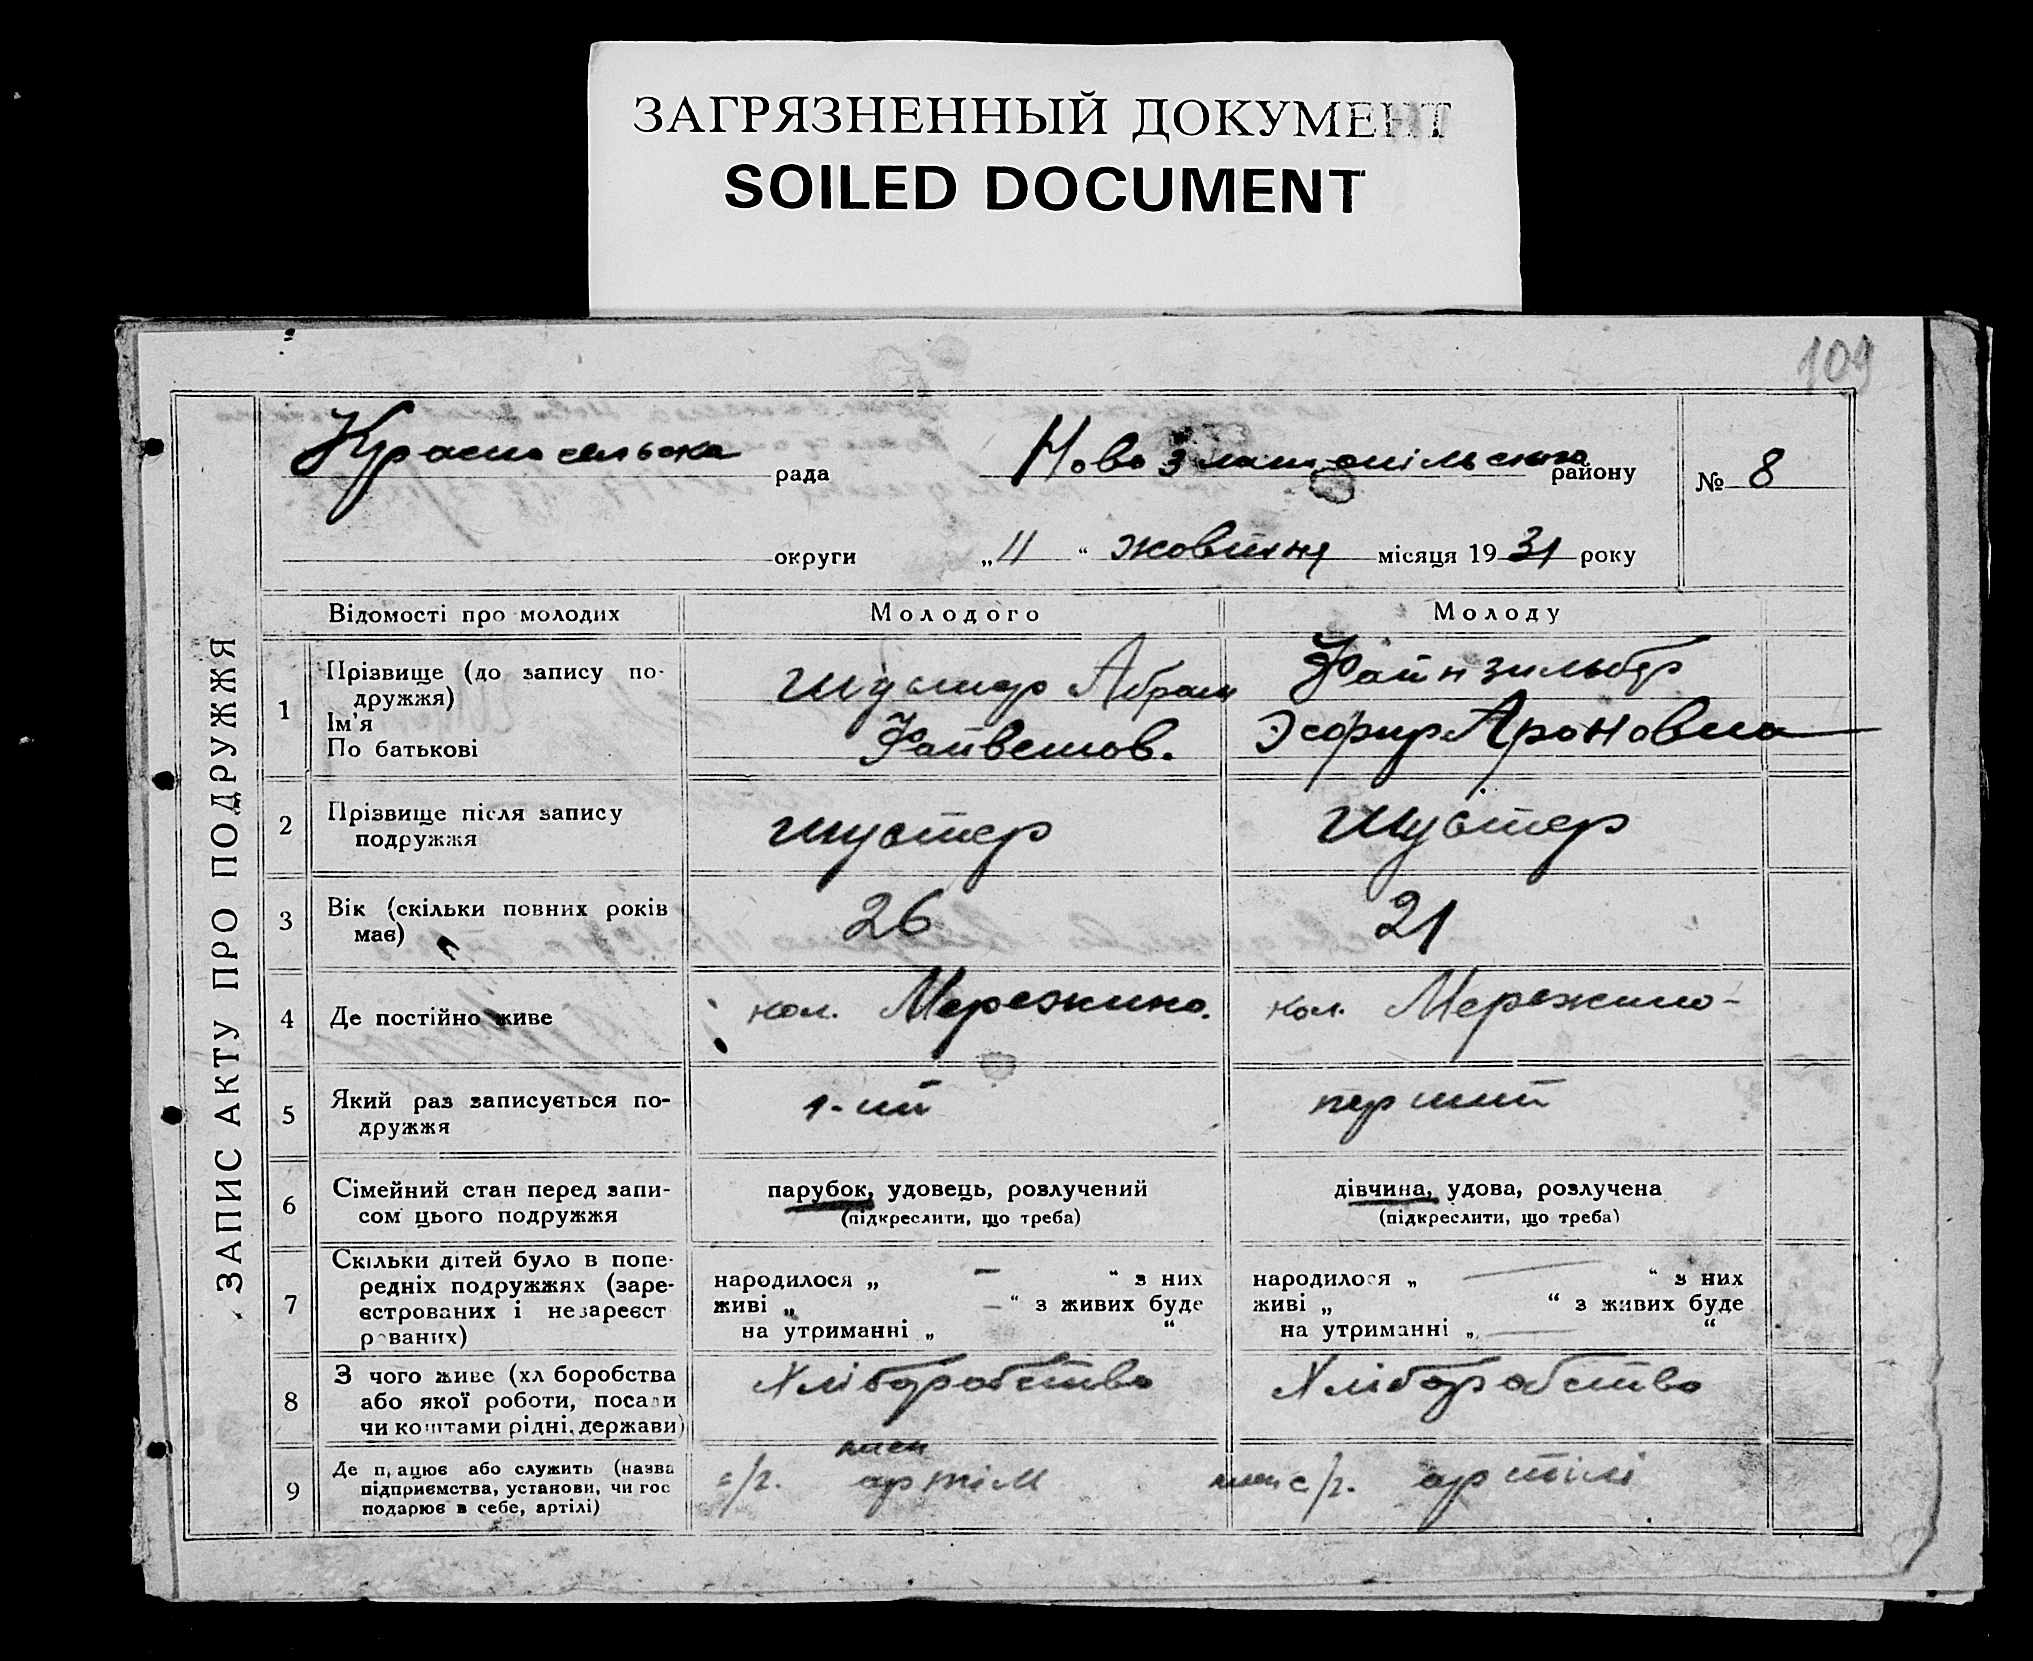 ЗАГРЯЗНЕННЫЙ ДОКУМЕНТ
SOILED DOCUMENT
109
ЗАПИС АКТУ ПРО ПОДРУЖЖЯ
Красносельска рада
Ново Златопільська району
№ 8
округи „11“ жовтня місяця 1931 року
Відомості про молодих Молодого Молоду
1 Прізвище (до запису подружжя)
Ім'я
По батькові
Шустер Абрам
Файвешов.
Файнзильбер
Эсфир Ароновна
2 Прізвище після запису
подружжя
Шустер
Шустер
3 Вік (скільки повних років
має)
26
21
4 Де постійно живе
кол. Мережино.
кол. Мережино-
5 Який раз записується по-
дружжя
1-ий
перший
6 Сімейний стан перед запи-
сом цього подружжя
парубок, удовець, розлучений
(підкреслити, що треба)
дівчина, удова, розлучена
(підкреслити, що треба)
7 Скільки дітей було в попе-
редніх подружжях (заре-
єстрованих і незареєст
рованих)
народилося „ — “ з них
живі „ — “ з живих буде
на утриманні „ “
народилося „ — “ з них
живі „ “ з живих буде
на утриманні „ — “
8 З чого живе (хліборобства
або якої роботи, посади
чи коштами рідні, держави)
Хліборобство
Хліборобство
9 Де працює або служить (назва
підприємства, установи, чи гос
подарює в себе, артілі)
член
с/г. артілі
член с/г. артілі